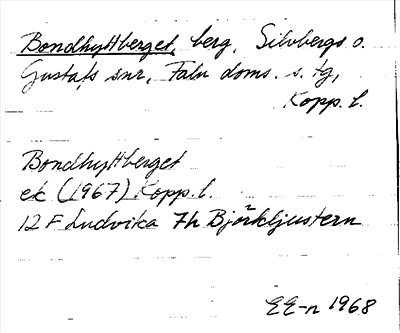 Bondhyttberget, berg, Silvbergs o.
Gustafs snr, Falu doms. s. tg,
Kopp. l.
Bondhyttberget
ek (1967) Kopp. l.
12 F Ludvika 7h Björkljustern
EE-n 1968